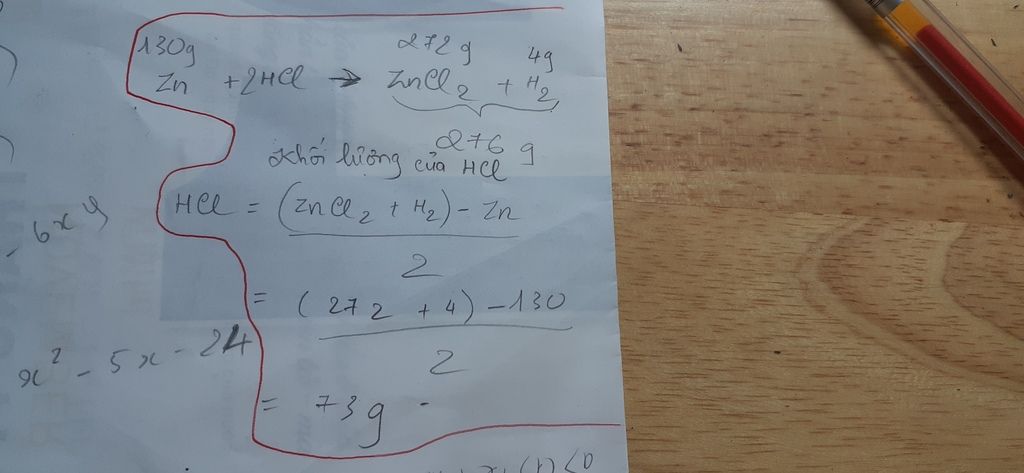 130g 272g 4g
Zn + 2HCl → ZnCl₂ + H₂
276 g
Khối lượng của HCl
HCl = (ZnCl₂ + H₂) - Zn
2
= (272 + 4) - 130
2
= 73g.
- 6x y
x² - 5x - 24